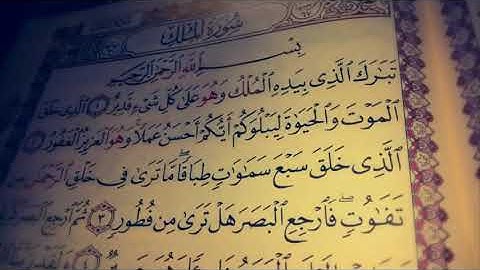 سُورَةُ الْمُلْكِ
بِسْمِ اللَّهِ الرَّحْمَٰنِ الرَّحِيمِ
تَبَٰرَكَ الَّذِى بِيَدِهِ الْمُلْكُ وَهُوَ عَلَىٰ كُلِّ شَىْءٍ قَدِيرٌ ١ الَّذِى خَلَقَ
الْمَوْتَ وَالْحَيَوٰةَ لِيَبْلُوَكُمْ أَيُّكُمْ أَحْسَنُ عَمَلًا وَهُوَ الْعَزِيزُ الْغَفُورُ ٢
الَّذِى خَلَقَ سَبْعَ سَمَٰوَٰتٍ طِبَاقًا مَّا تَرَىٰ فِى خَلْقِ الرَّحْمَٰنِ مِن
تَفَٰوُتٍ فَارْجِعِ الْبَصَرَ هَلْ تَرَىٰ مِن فُطُورٍ ٣ ثُمَّ ارْجِعِ الْبَصَرَ